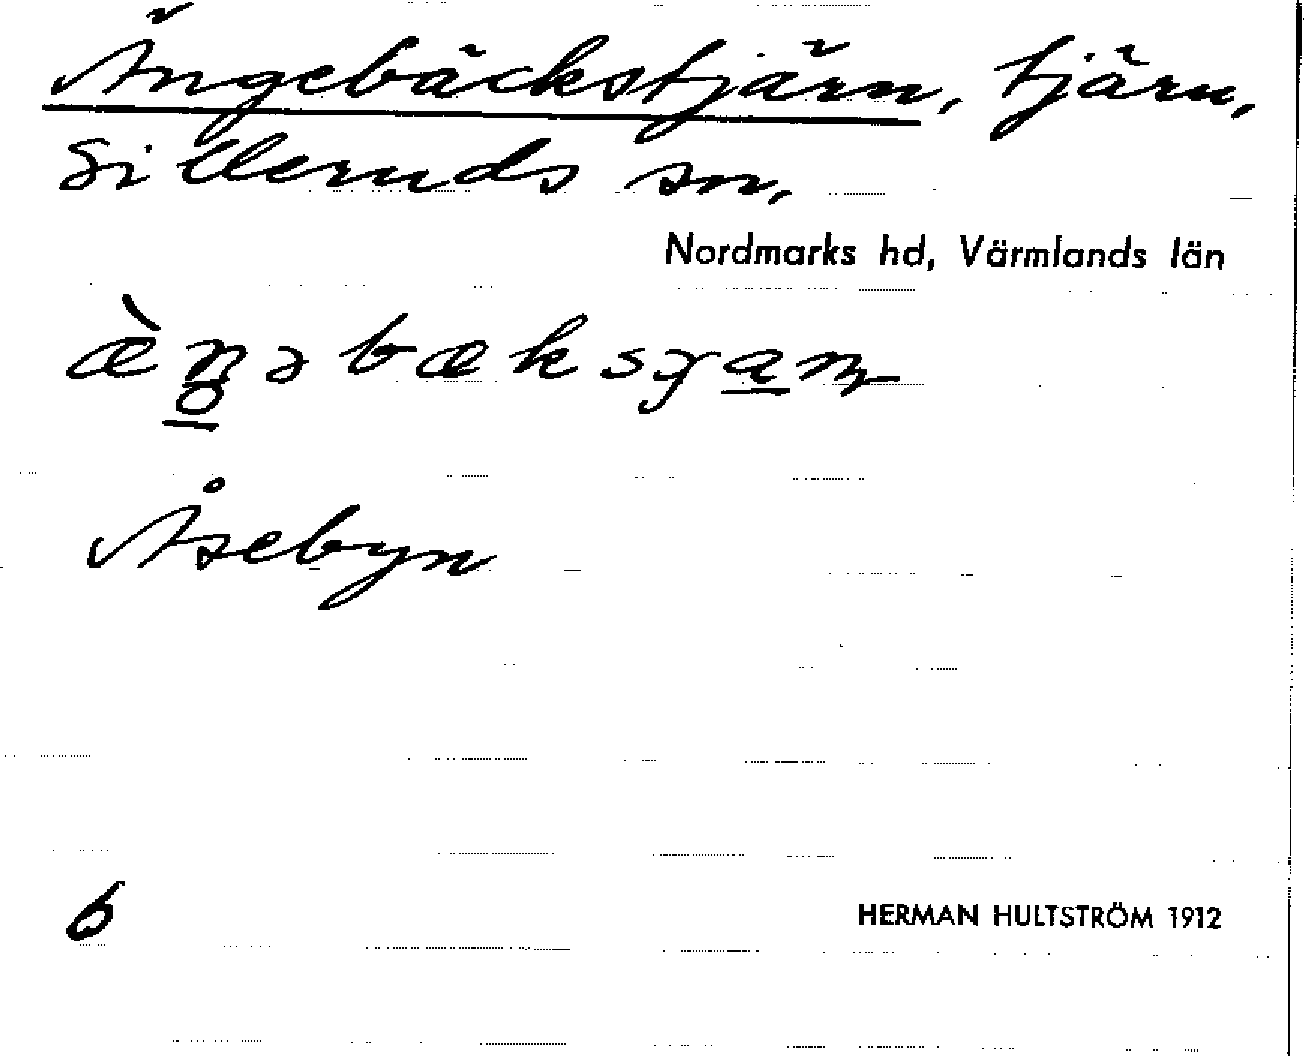 Ängebäckstjärn, tjärn,
Silleruds sn,
Nordmarks hd, Värmlands län
Åsebyn
6
HERMAN HULTSTRÖM 1912